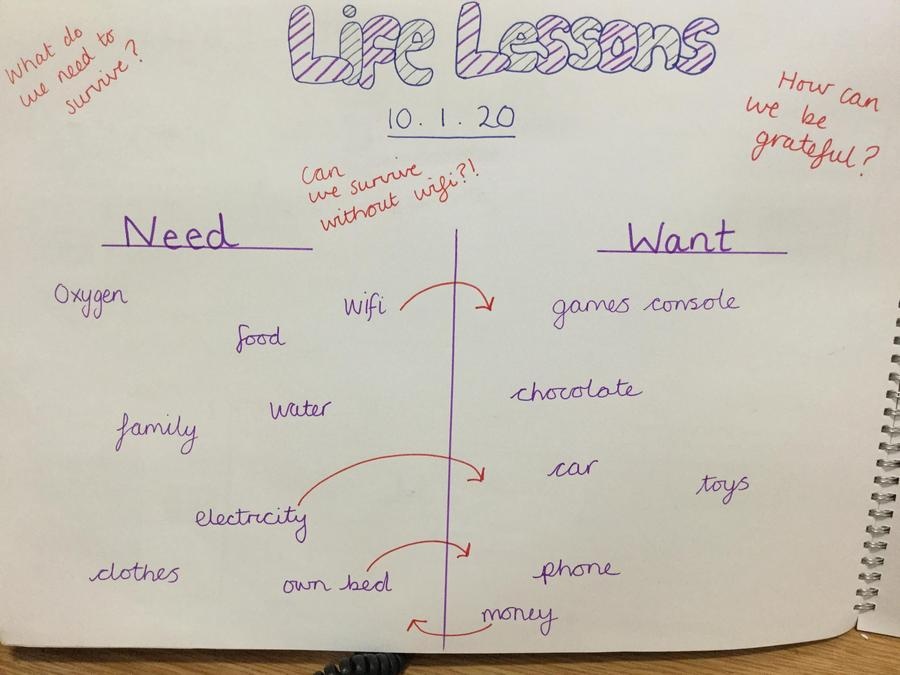 Life Lessons
What do
we need to
survive?
10.1.20
How can
we be
grateful?
Can
we survive
without wifi?!
Need
Want
Oxygen
wifi
games console
food
chocolate
water
family
car
toys
electricity
clothes
own bed
phone
money